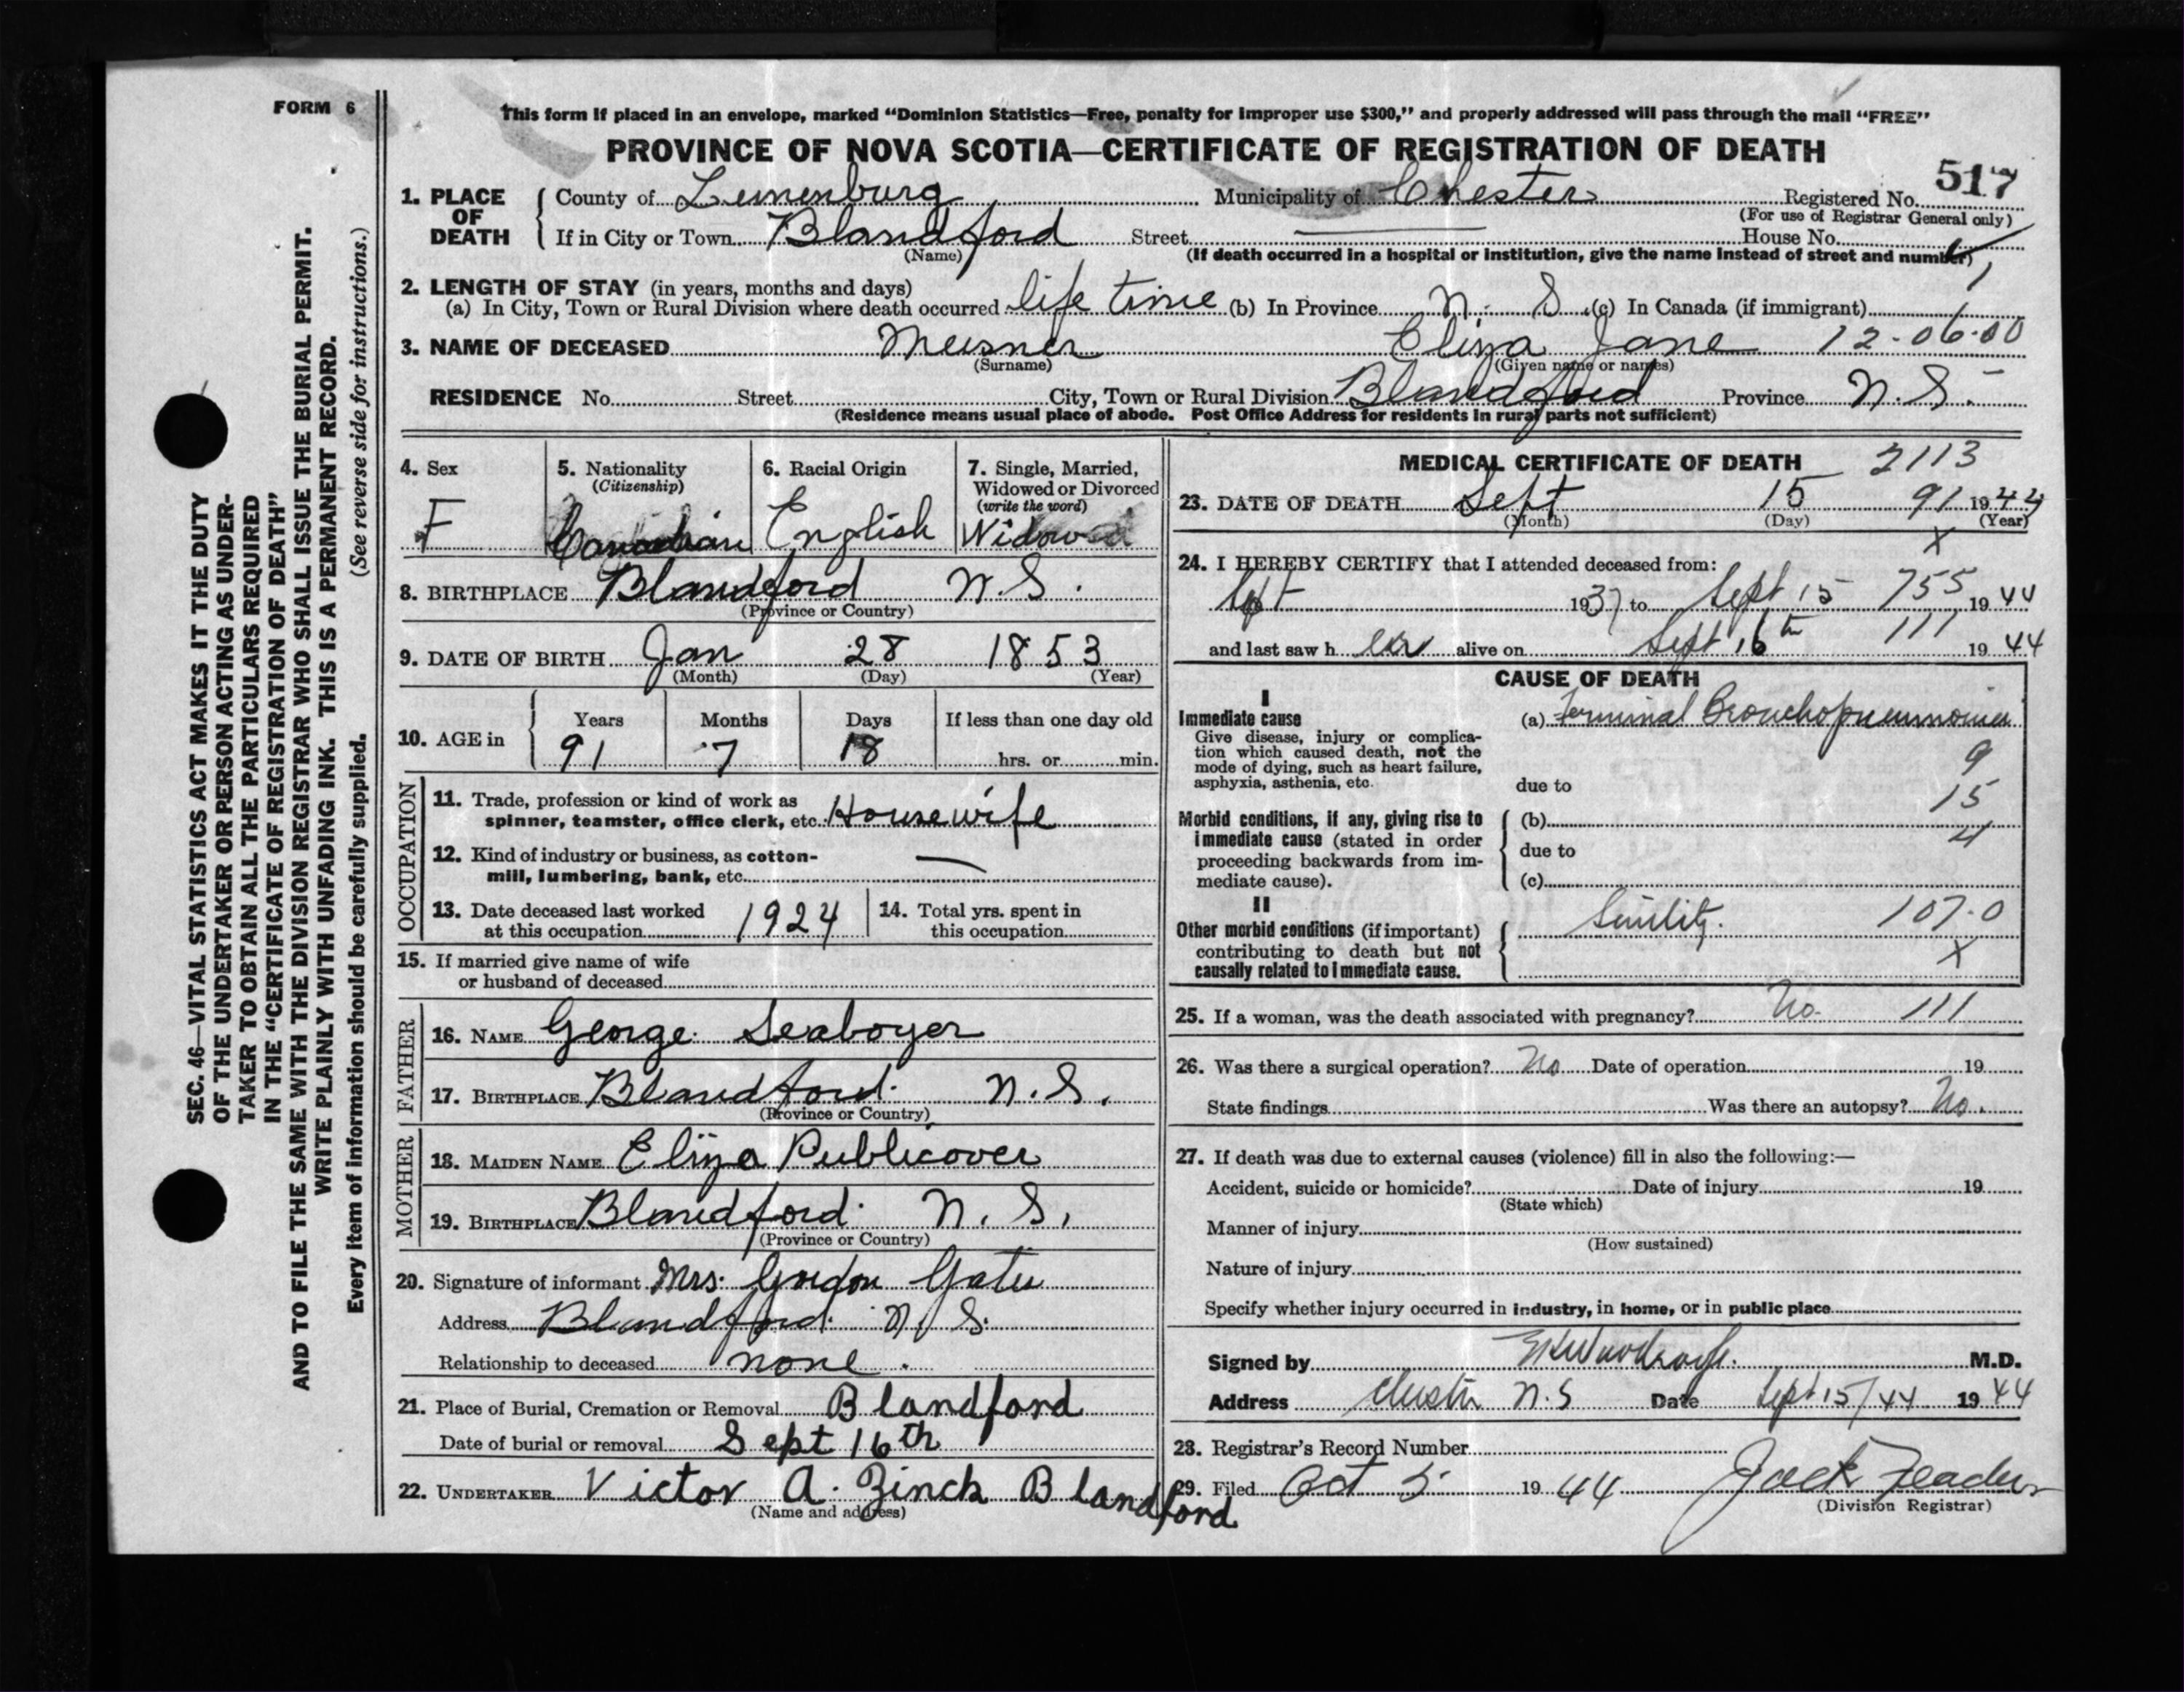 FORM 6
This form if placed in an envelope, marked "Dominion Statistics—Free, penalty for improper use $300," and properly addressed will pass through the mail "FREE"
PROVINCE OF NOVA SCOTIA—CERTIFICATE OF REGISTRATION OF DEATH
517
1. PLACE OF DEATH County of Lunenburg Municipality of Chester Registered No.
(For use of Registrar General only)
If in City or Town Blandford Street House No.
(Name) (If death occurred in a hospital or institution, give the name instead of street and number)
2. LENGTH OF STAY (in years, months and days)
(a) In City, Town or Rural Division where death occurred life time (b) In Province N. S. (c) In Canada (if immigrant)
3. NAME OF DECEASED Meisner Eliza Jane 12-06-00
(Surname) (Given name or names)
RESIDENCE No. Street City, Town or Rural Division Blandford Province N.S.
(Residence means usual place of abode. Post Office Address for residents in rural parts not sufficient)
4. Sex F
5. Nationality (Citizenship) Canadian
6. Racial Origin English
7. Single, Married, Widowed or Divorced (write the word) Widowed
8. BIRTHPLACE Blandford N.S.
(Province or Country)
9. DATE OF BIRTH Jan 28 1853
(Month) (Day) (Year)
10. AGE in Years Months Days If less than one day old
91 7 18 hrs. or min.
OCCUPATION
11. Trade, profession or kind of work as spinner, teamster, office clerk, etc. Housewife
12. Kind of industry or business, as cotton-mill, lumbering, bank, etc. —
13. Date deceased last worked at this occupation 1924
14. Total yrs. spent in this occupation
15. If married give name of wife or husband of deceased
FATHER
16. NAME George Seaboyer
17. BIRTHPLACE Blandford N.S.
(Province or Country)
MOTHER
18. MAIDEN NAME Eliza Publicover
19. BIRTHPLACE Blandford N. S.
(Province or Country)
20. Signature of informant Mrs. Gordon Gates
Address Blandford N S.
Relationship to deceased none.
21. Place of Burial, Cremation or Removal Blandford
Date of burial or removal Sept 16th
22. UNDERTAKER Victor A. Zinck Blandford
(Name and address)
MEDICAL CERTIFICATE OF DEATH 2113
23. DATE OF DEATH Sept 15 91 1944
(Month) (Day) (Year)
X
24. I HEREBY CERTIFY that I attended deceased from:
Sept 1937 to Sept 15 755 1944
and last saw her alive on Sept 16th 111 1944
CAUSE OF DEATH
I
Immediate cause (a) Terminal Bronchopneumonia
Give disease, injury or complication which caused death, not the mode of dying, such as heart failure, asphyxia, asthenia, etc.
9
due to
15
Morbid conditions, if any, giving rise to immediate cause (stated in order proceeding backwards from immediate cause).
(b)
4
due to
(c)
II
Other morbid conditions (if important) contributing to death but not causally related to immediate cause.
Senility. 107.0
X
25. If a woman, was the death associated with pregnancy? No. 111
26. Was there a surgical operation? No Date of operation 19
State findings Was there an autopsy? No.
27. If death was due to external causes (violence) fill in also the following:—
Accident, suicide or homicide? Date of injury 19
(State which)
Manner of injury
(How sustained)
Nature of injury
Specify whether injury occurred in industry, in home, or in public place
Signed by M.D.
Address Chester N.S Date Sept 15/44 1944
28. Registrar's Record Number
29. Filed Oct 5 1944 Jack
(Division Registrar)
SEC. 46—VITAL STATISTICS ACT MAKES IT THE DUTY
OF THE UNDERTAKER OR PERSON ACTING AS UNDER-
TAKER TO OBTAIN ALL THE PARTICULARS REQUIRED
IN THE "CERTIFICATE OF REGISTRATION OF DEATH"
AND TO FILE THE SAME WITH THE DIVISION REGISTRAR WHO SHALL ISSUE THE BURIAL PERMIT.
WRITE PLAINLY WITH UNFADING INK. THIS IS A PERMANENT RECORD.
Every item of information should be carefully supplied. (See reverse side for instructions.)